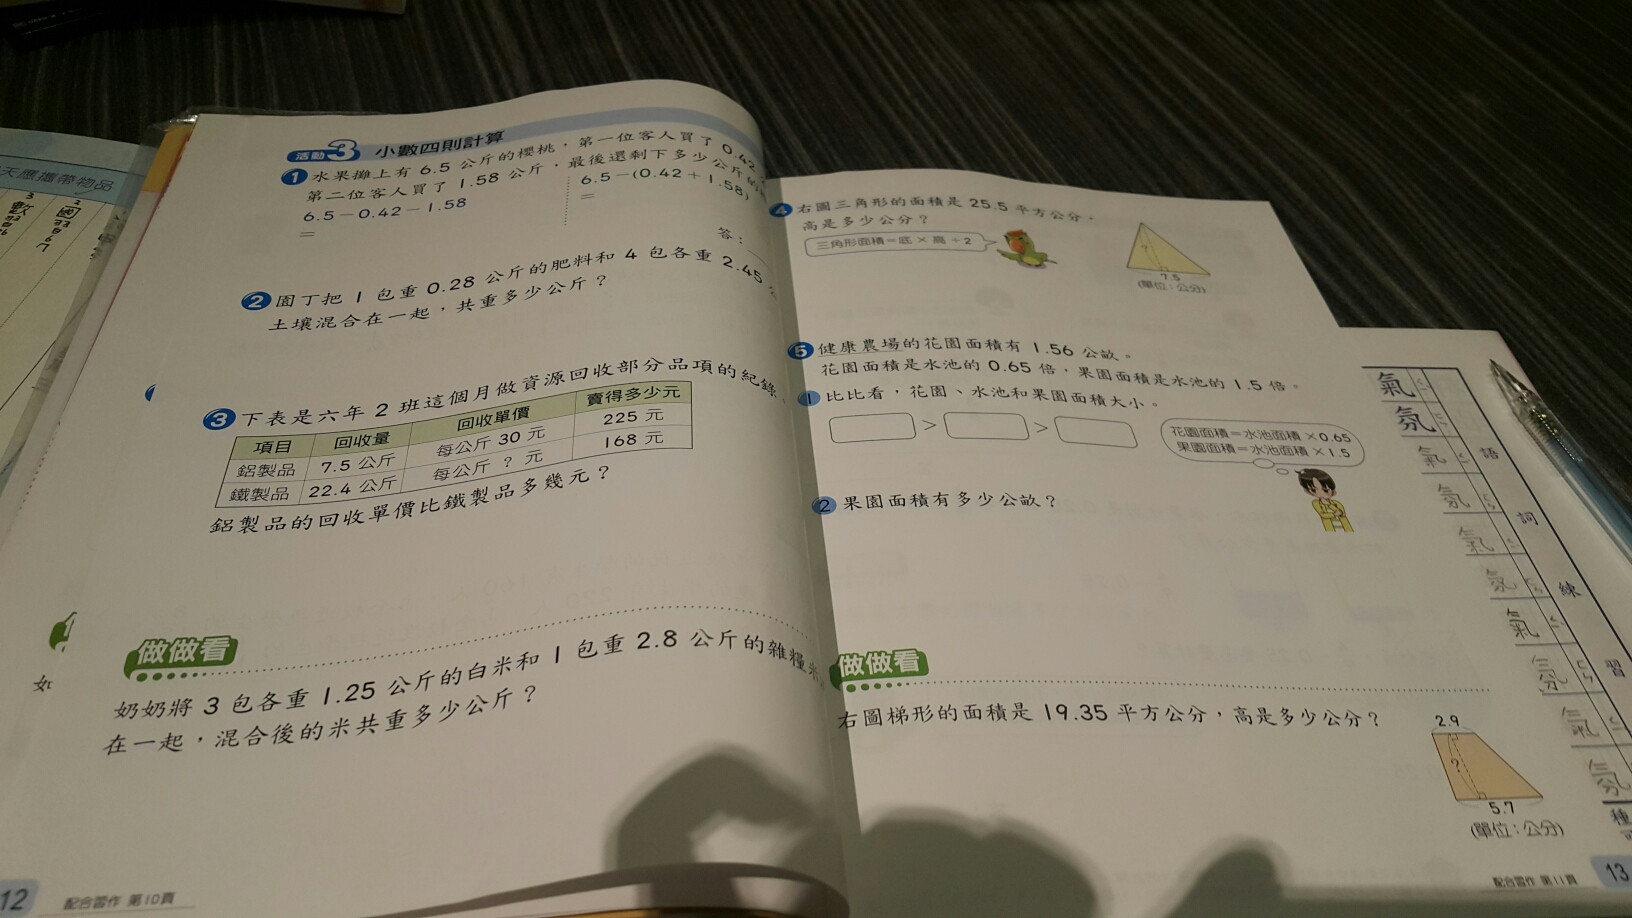 天應攜帶物品
活動3 小數四則計算
1 水果攤上有 6.5 公斤的櫻桃，第一位客人買了 0.42
第二位客人買了 1.58 公斤，最後還剩下多少公斤的
6.5－0.42－1.58
＝
6.5－(0.42＋1.58)
＝
答：
2 園丁把 1 包重 0.28 公斤的肥料和 4 包各重 2.45
土壤混合在一起，共重多少公斤？
3 下表是六年 2 班這個月做資源回收部分品項的紀錄。
項目 回收量 回收單價 賣得多少元
鋁製品 7.5 公斤 每公斤 30 元 225 元
鐵製品 22.4 公斤 每公斤 ? 元 168 元
鋁製品的回收單價比鐵製品多幾元？
做做看
奶奶將 3 包各重 1.25 公斤的白米和 1 包重 2.8 公斤的雜糧米
在一起，混合後的米共重多少公斤？
如
12
配合習作 第10頁
4 右圖三角形的面積是 25.5 平方公分，
高是多少公分？
三角形面積＝底×高÷2
?
7.5
(單位：公分)
5 健康農場的花園面積有 1.56 公畝。
花園面積是水池的 0.65 倍，果園面積是水池的 1.5 倍。
1 比比看，花園、水池和果園面積大小。
＞ ＞
花園面積＝水池面積×0.65
果園面積＝水池面積×1.5
2 果園面積有多少公畝？
做做看
右圖梯形的面積是 19.35 平方公分，高是多少公分？
2.9
?
5.7
(單位：公分)
配合習作 第11頁
13
語詞練習
氣
氛
氣
氛
氣
氛
氣
氛
氣
氛